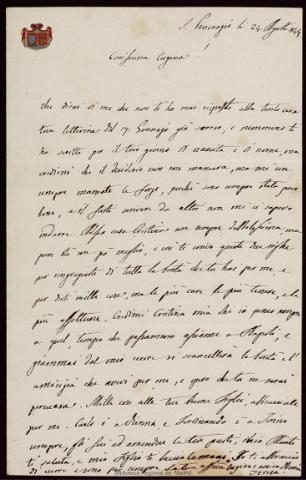 S. Pancrazio li 24. Agosto 1844
Carissima Cugina!
Che dirai di me che non ti ho mai risposto alla tanto cara
tua letterina del 17. Gennajo già scorso, e nemmeno ti
ho scritto per il tuo giorno di nascita e di nome, ma
credimi che il desiderio non mi mancava, ma mi son
sempre mancate le forze, perché sono sempre stata poco
bene, e il far scrivere da altri non mi ci sapevo
indurre. Adesso cara Cristina son sempre debolissima, ma
pure sto un po meglio, e così t'invio queste due righe
per ringraziarti di tutta la bontà che tu hai per me, e
per dirti mille cose, ma le più care le più tenere, e le
più affettuose. Credimi Cristina mia che io penso sempre
a quel tempo che passammo assieme a Napoli, e
giammai dal mio cuore si scancellerà la bontà e l'
amicizia che avevi per me, e spero che tu ne sarai
persuasa. Mille cose alle tue buone figlie, abbracciale
per me. Carlo è a Vienna e Ferdinando è a Torino
sempre,
ti saluta, e mio figlio ti bacia le mani. Io ti abbraccio
di cuore e sono per sempre La tua affma Cugina e amica Maria
Teresa
Biblioteca Regional de Madrid